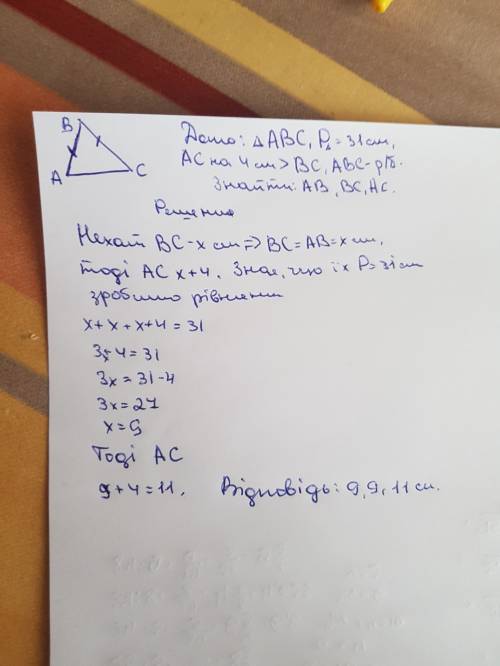 B
A
C
Дано: △ABC, P△ = 31 см,
AC на 4 см > BC, ABC - р/б.
Знайти: AB, BC, AC.
Решение
Нехай BC - x см => BC = AB = x см,
тоді AC x+4. Знає, що їх P = 31 см
зробимо рівняння
x + x + x + 4 = 31
3x 4 = 31
3x = 31 - 4
3x = 27
x = 9
Тоді AC
9 + 4 = 11. Відповідь: 9, 9, 11 см.